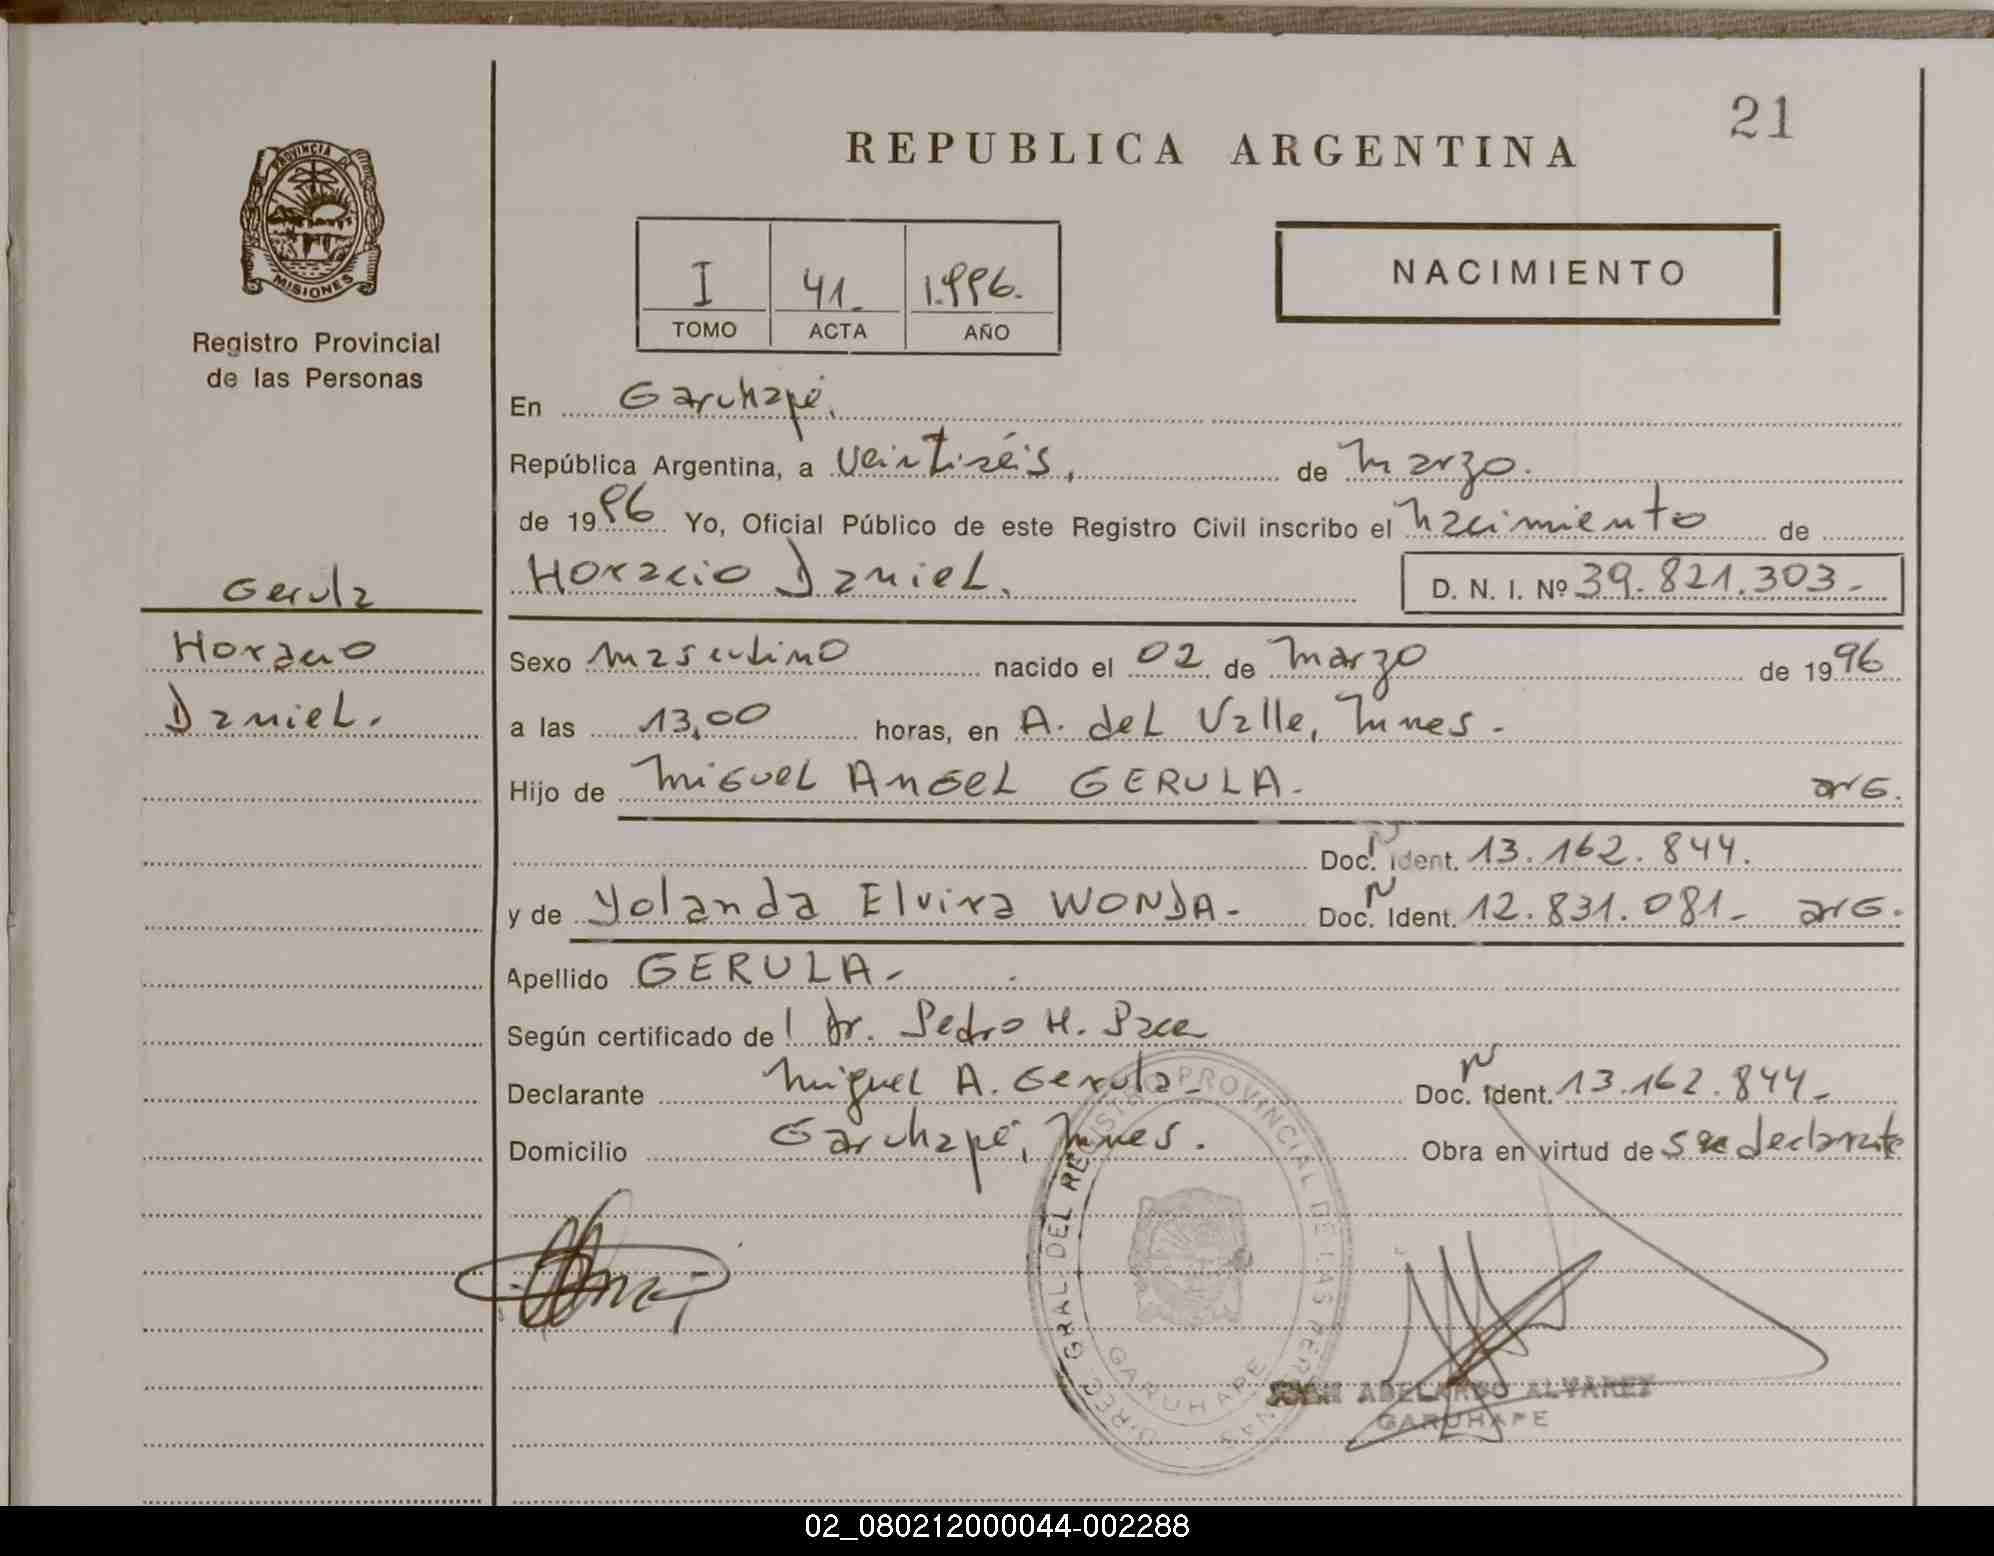 21
REPUBLICA ARGENTINA
PROVINCIA DE
MISIONES
Registro Provincial
de las Personas
I 41_ 1.996.
TOMO ACTA AÑO
NACIMIENTO
En Garuhapé.
República Argentina, a veintiséis, de Marzo.
de 1996 Yo, Oficial Público de este Registro Civil inscribo el nacimiento de
Horacio Daniel. D. N. I. Nº 39.821.303-
Gerula
Horacio
Daniel.
Sexo masculino nacido el 02 de Marzo de 1996
a las 13,00 horas, en A. del Valle, Mnes.
Hijo de Miguel Angel GERULA- arg.
Doc. N Ident. 13.162.844.
y de Yolanda Elvira WONDA- Doc. N Ident. 12.831.081- arg.
Apellido GERULA-
Según certificado del Dr. Pedro H.
Declarante Miguel A. Gerula- Doc. N Ident. 13.162.844-
Domicilio Garuhapé, Mnes. Obra en virtud de ser declarante
DIREC. GRAL. DEL REGISTRO PROVINCIAL DE LAS PERSONAS
GARUHAPE
JUAN ADELARDO ALVAREZ
GARUHAPE
02_080212000044-002288